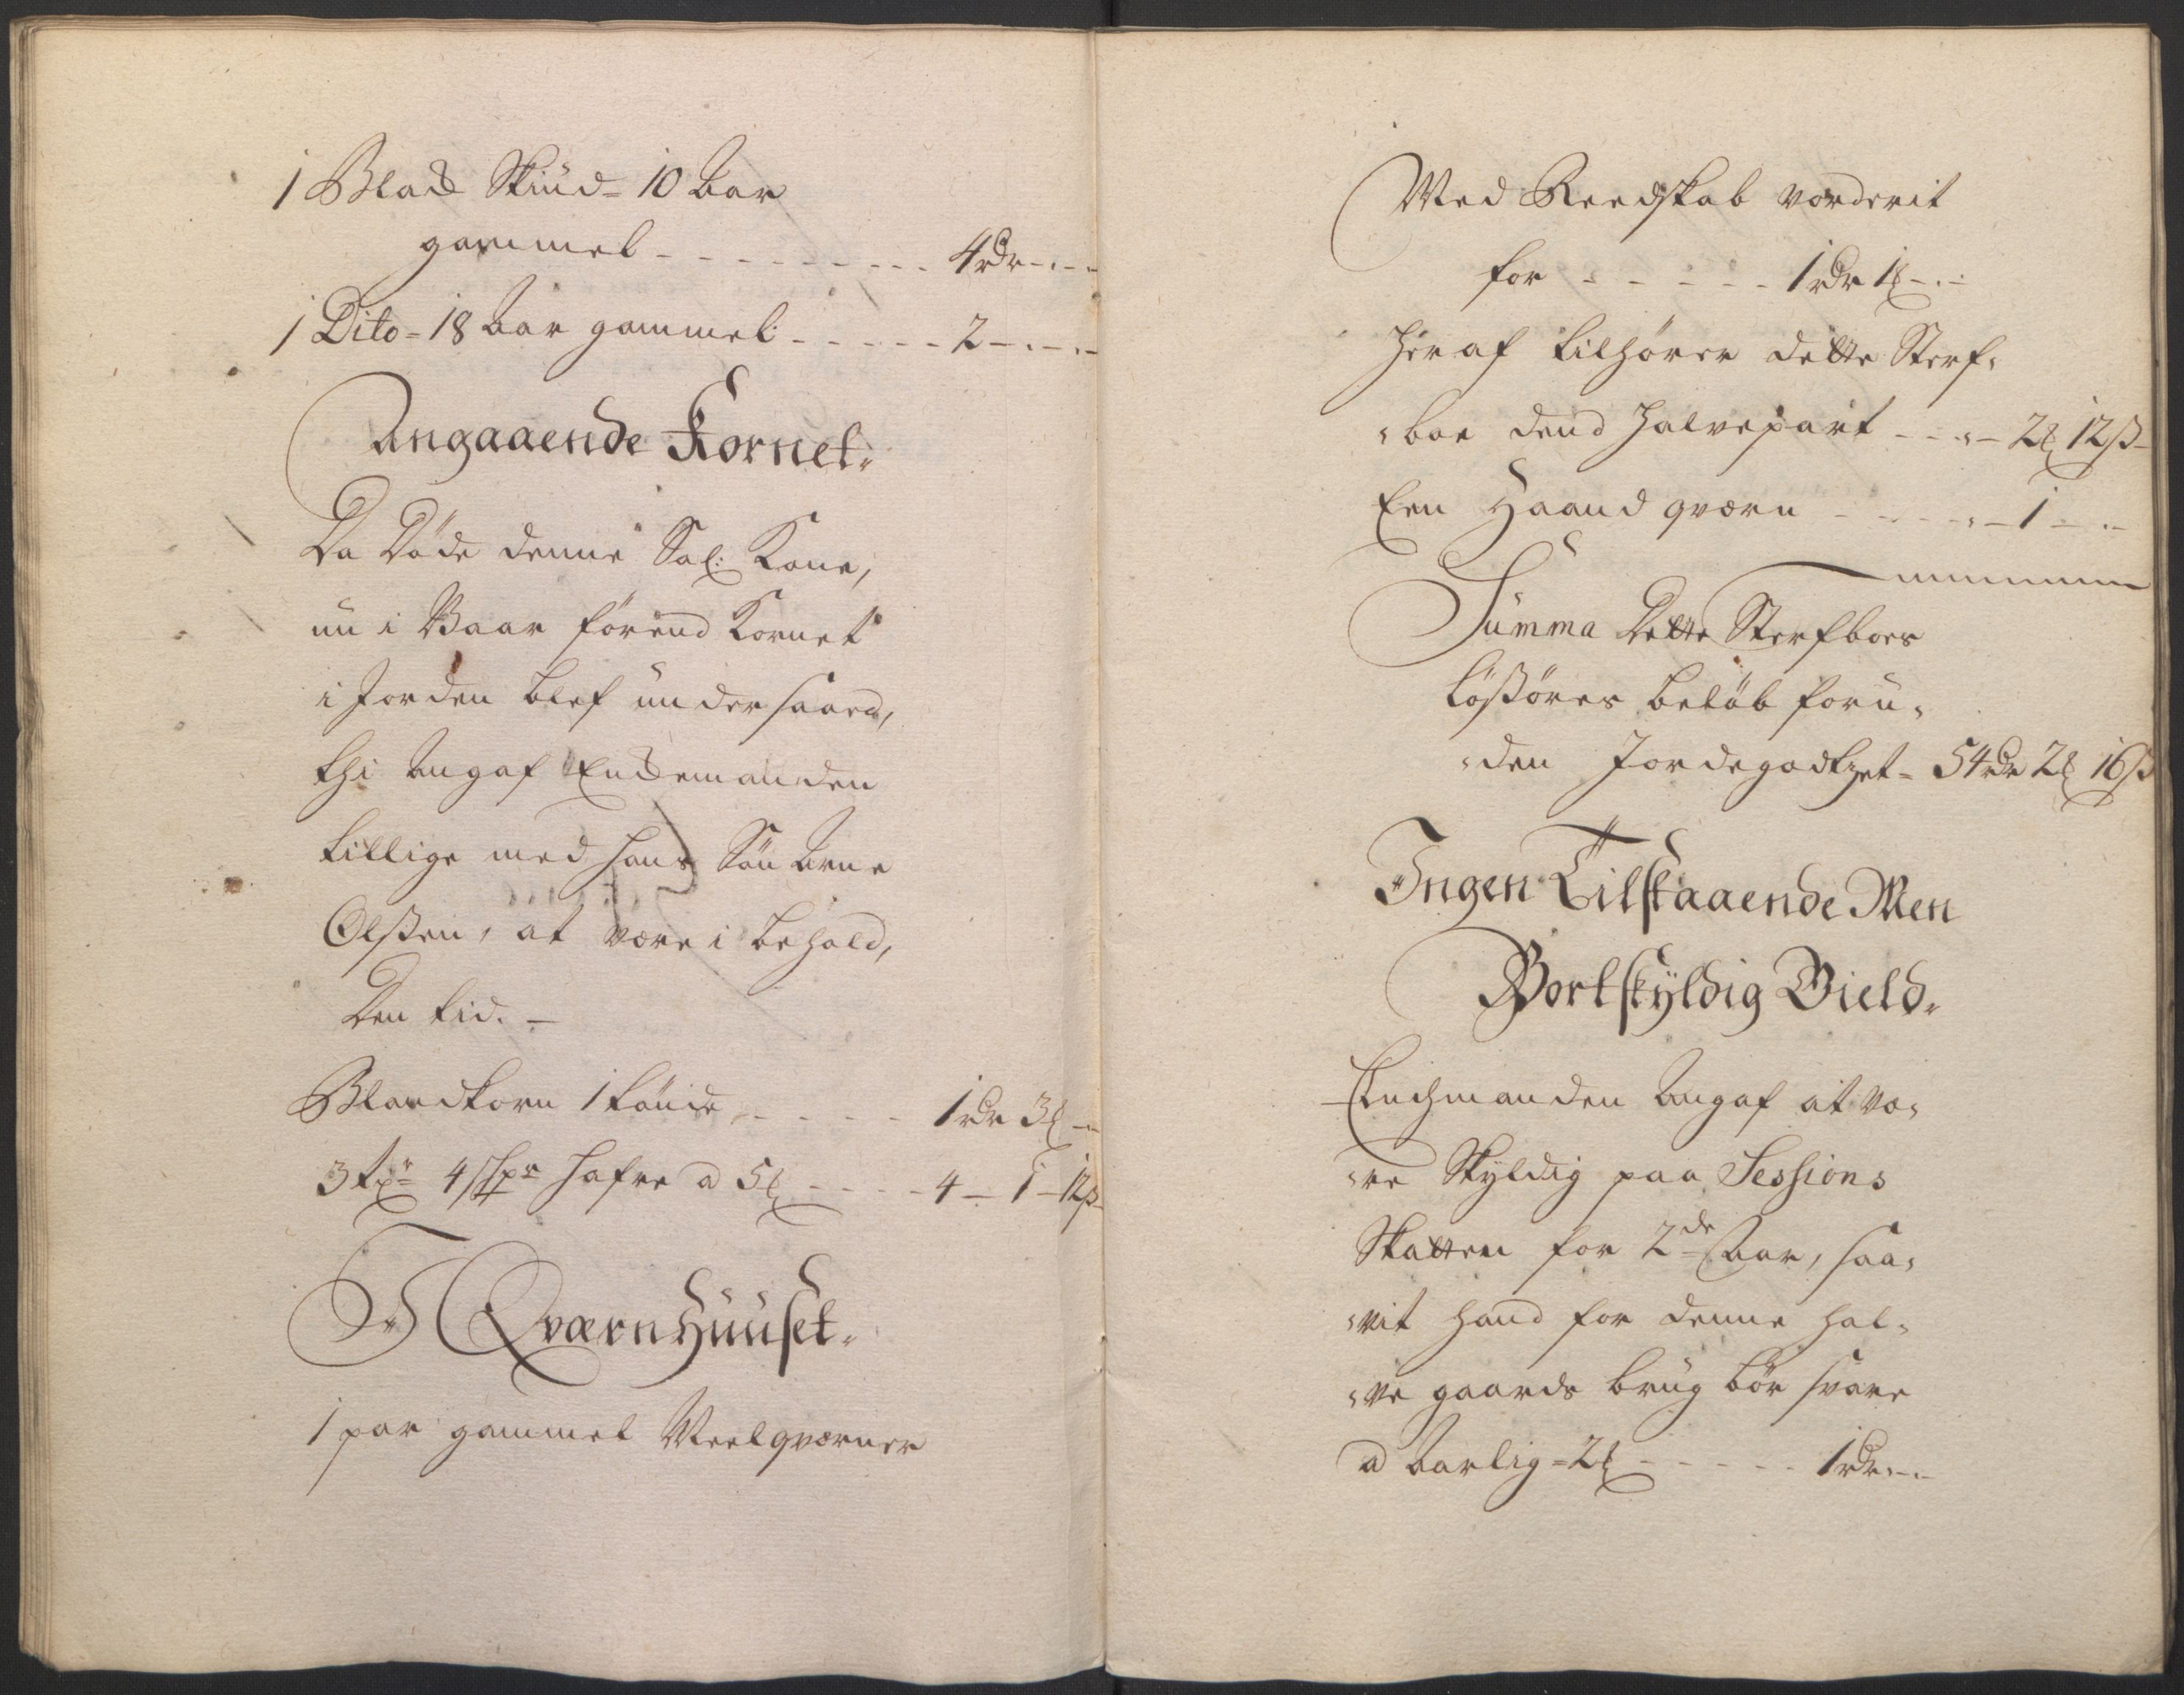 1 Black Skiud = 10 aar
gammel - - - - - - - - - 4 rdr - - -
1 Dito = 18 aar gammel - - - - - 2 - . - . -
Angaaende Kornet.
Da Døde denne Sal: Kone,
nu i Vaar førend Kornet
i Jorden blef under saaed,
thi angaf Enckemanden
tillige med hans Søn Arne
Olssen, at være i behold,
den tid. -
Blandkorn 1 tønde - - - - - 1 rdr 3 ₻ - -
3 tør 4 Shpr hafre a 5 ₻ - - - - 4 - 1 - 12 β
I Qværnhuuset.
1 par gammel Meelqværner
Med Reedskab vorderit
for - - - - - 1 rdr 1 ₻ - . -
heraf tilhører dette Sterf-
-boe dend halvepart - - - - 2 ₻ 12 β
Een Haand qværn - - - - - 1 - . -
Summa Dette Sterfboes
Løssøres beløb foru-
-den Jordegodtzet - 54 rdr 2 ₻ 16 β
Ingen Tilstaaende Men
Bortskyldig Gield.
Enchmanden angaf at væ-
-re Skyldig paa Sessions
Skatten for 2de aar, saa-
-vit hand for denne hal-
-ve gaards brug bør svare
a aarlig = 2 ₻ - - - - - 1 rdr - . -